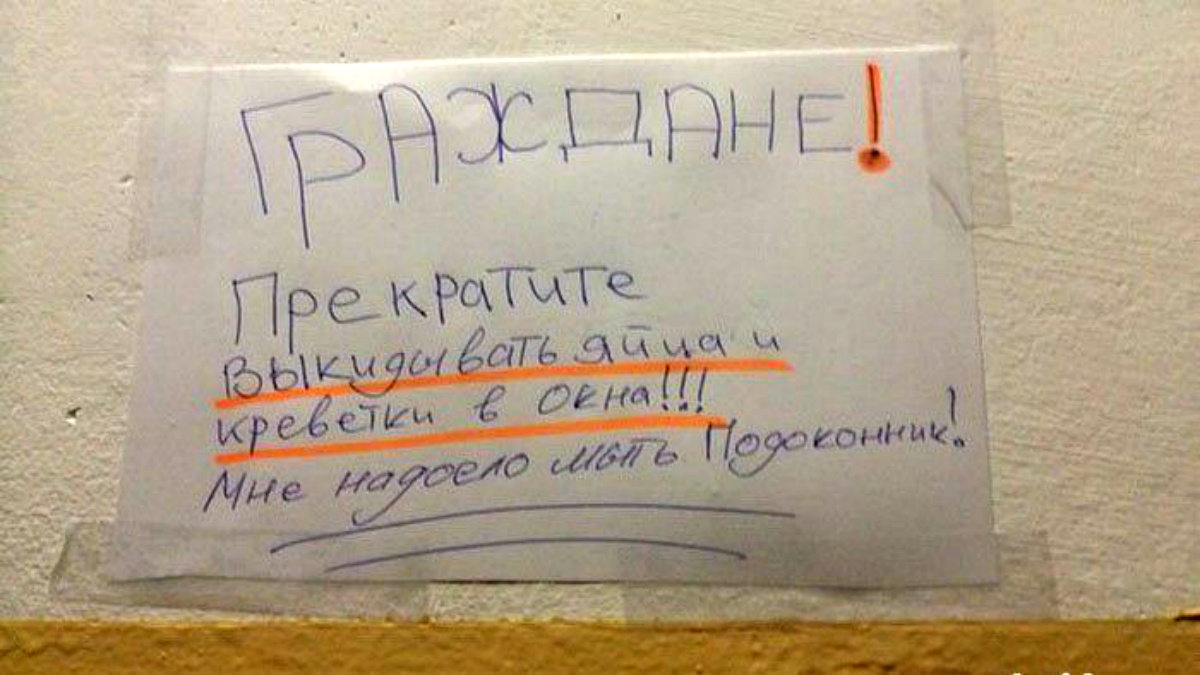 ГРАЖДАНЕ!
Прекратите
выкидывать яйца и
креветки в окна!!!
Мне надоело мыть Подоконник!